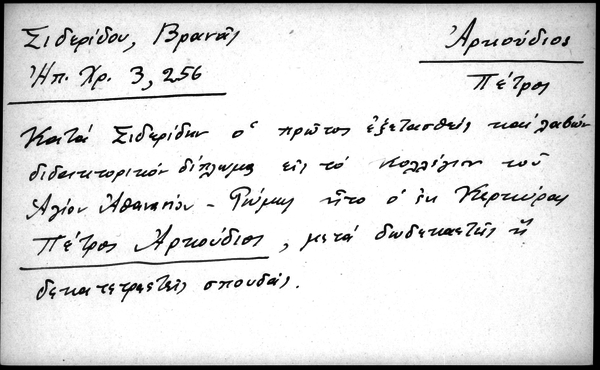 Σιδερίδου, Βρανᾶς
Ἀρκούδιος
Ἠπ. Χρ. 3, 256
Πέτρος
Κατά Σιδερίδην ὁ πρῶτος ἐξετασθείς καί λαβών
διδακτορικόν δίπλωμα εἰς τό Κολλέγιον τοῦ
Ἁγίου Ἀθανασίου - Ρώμης ἦτο ὁ ἐκ Κερκύρας
Πέτρος Ἀρκούδιος, μετά δωδεκαετῆς ἤ
δεκατετραετεῖς σπουδάς.